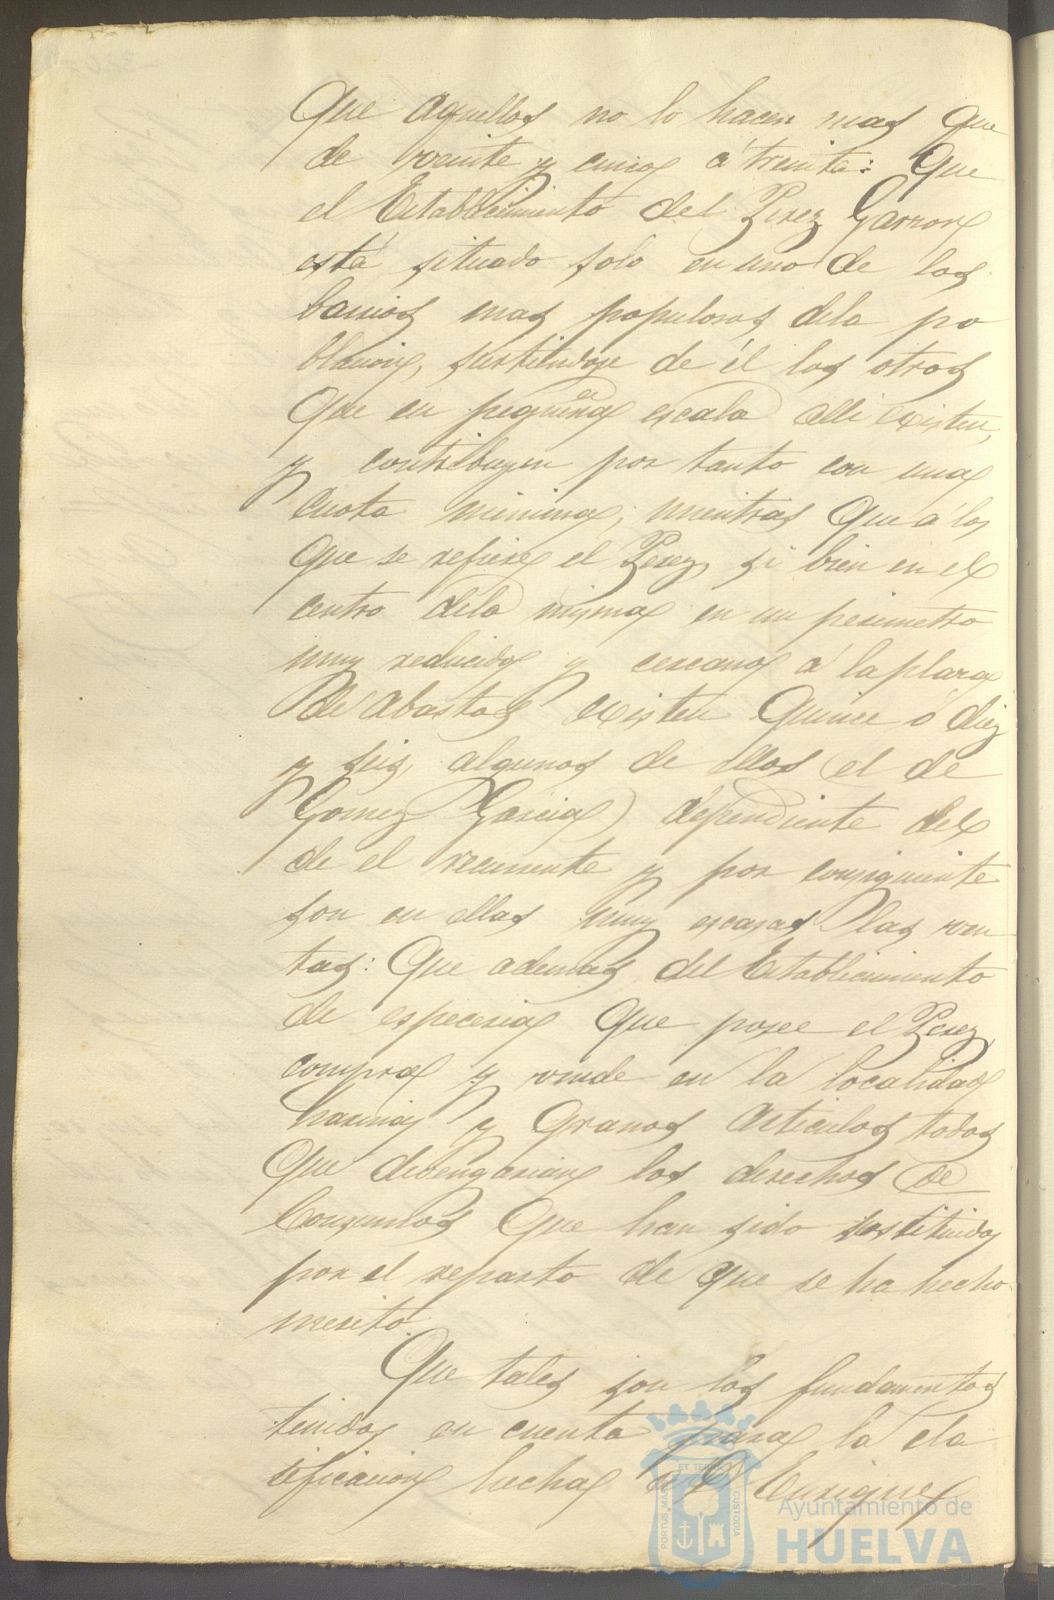 Que aquellos no lo hacen mas que
de veinte y cinco á treinta: Que
el Establecimiento del Perez Garzon
está situado solo en uno de los
barrios mas populosos dela po
blacion, surtiendose de él los otros
que en pequeña escala alli existen,
y contribuyen por tanto con una
cuota minima; mientras que á los
que se refiere el Perez, si bien en el
centro dela misma en un perimetro
muy reducido y cercano á la plaza
de Abastos existen quince ó diez
y seis, algunos de ellos (el de
Gomez Garcia) dependiente del
de el recurrente y por consiguiente
son en ellas muy escasas las ven
tas: Que ademas del Establecimiento
de especeria que posee el Perez,
compra y vende en la localidad
harinas y granos articulos todos
que devengarian los derechos de
Consumos que han sido sostituidos
por el reparto de que se ha hecho
merito.
Que tales son los fundamentos
tenidos en cuenta para la cla
sificacion hecha á D. Enrique
PORTUS MARIS ET TERRAE CUSTODIA
Ayuntamiento de
HUELVA